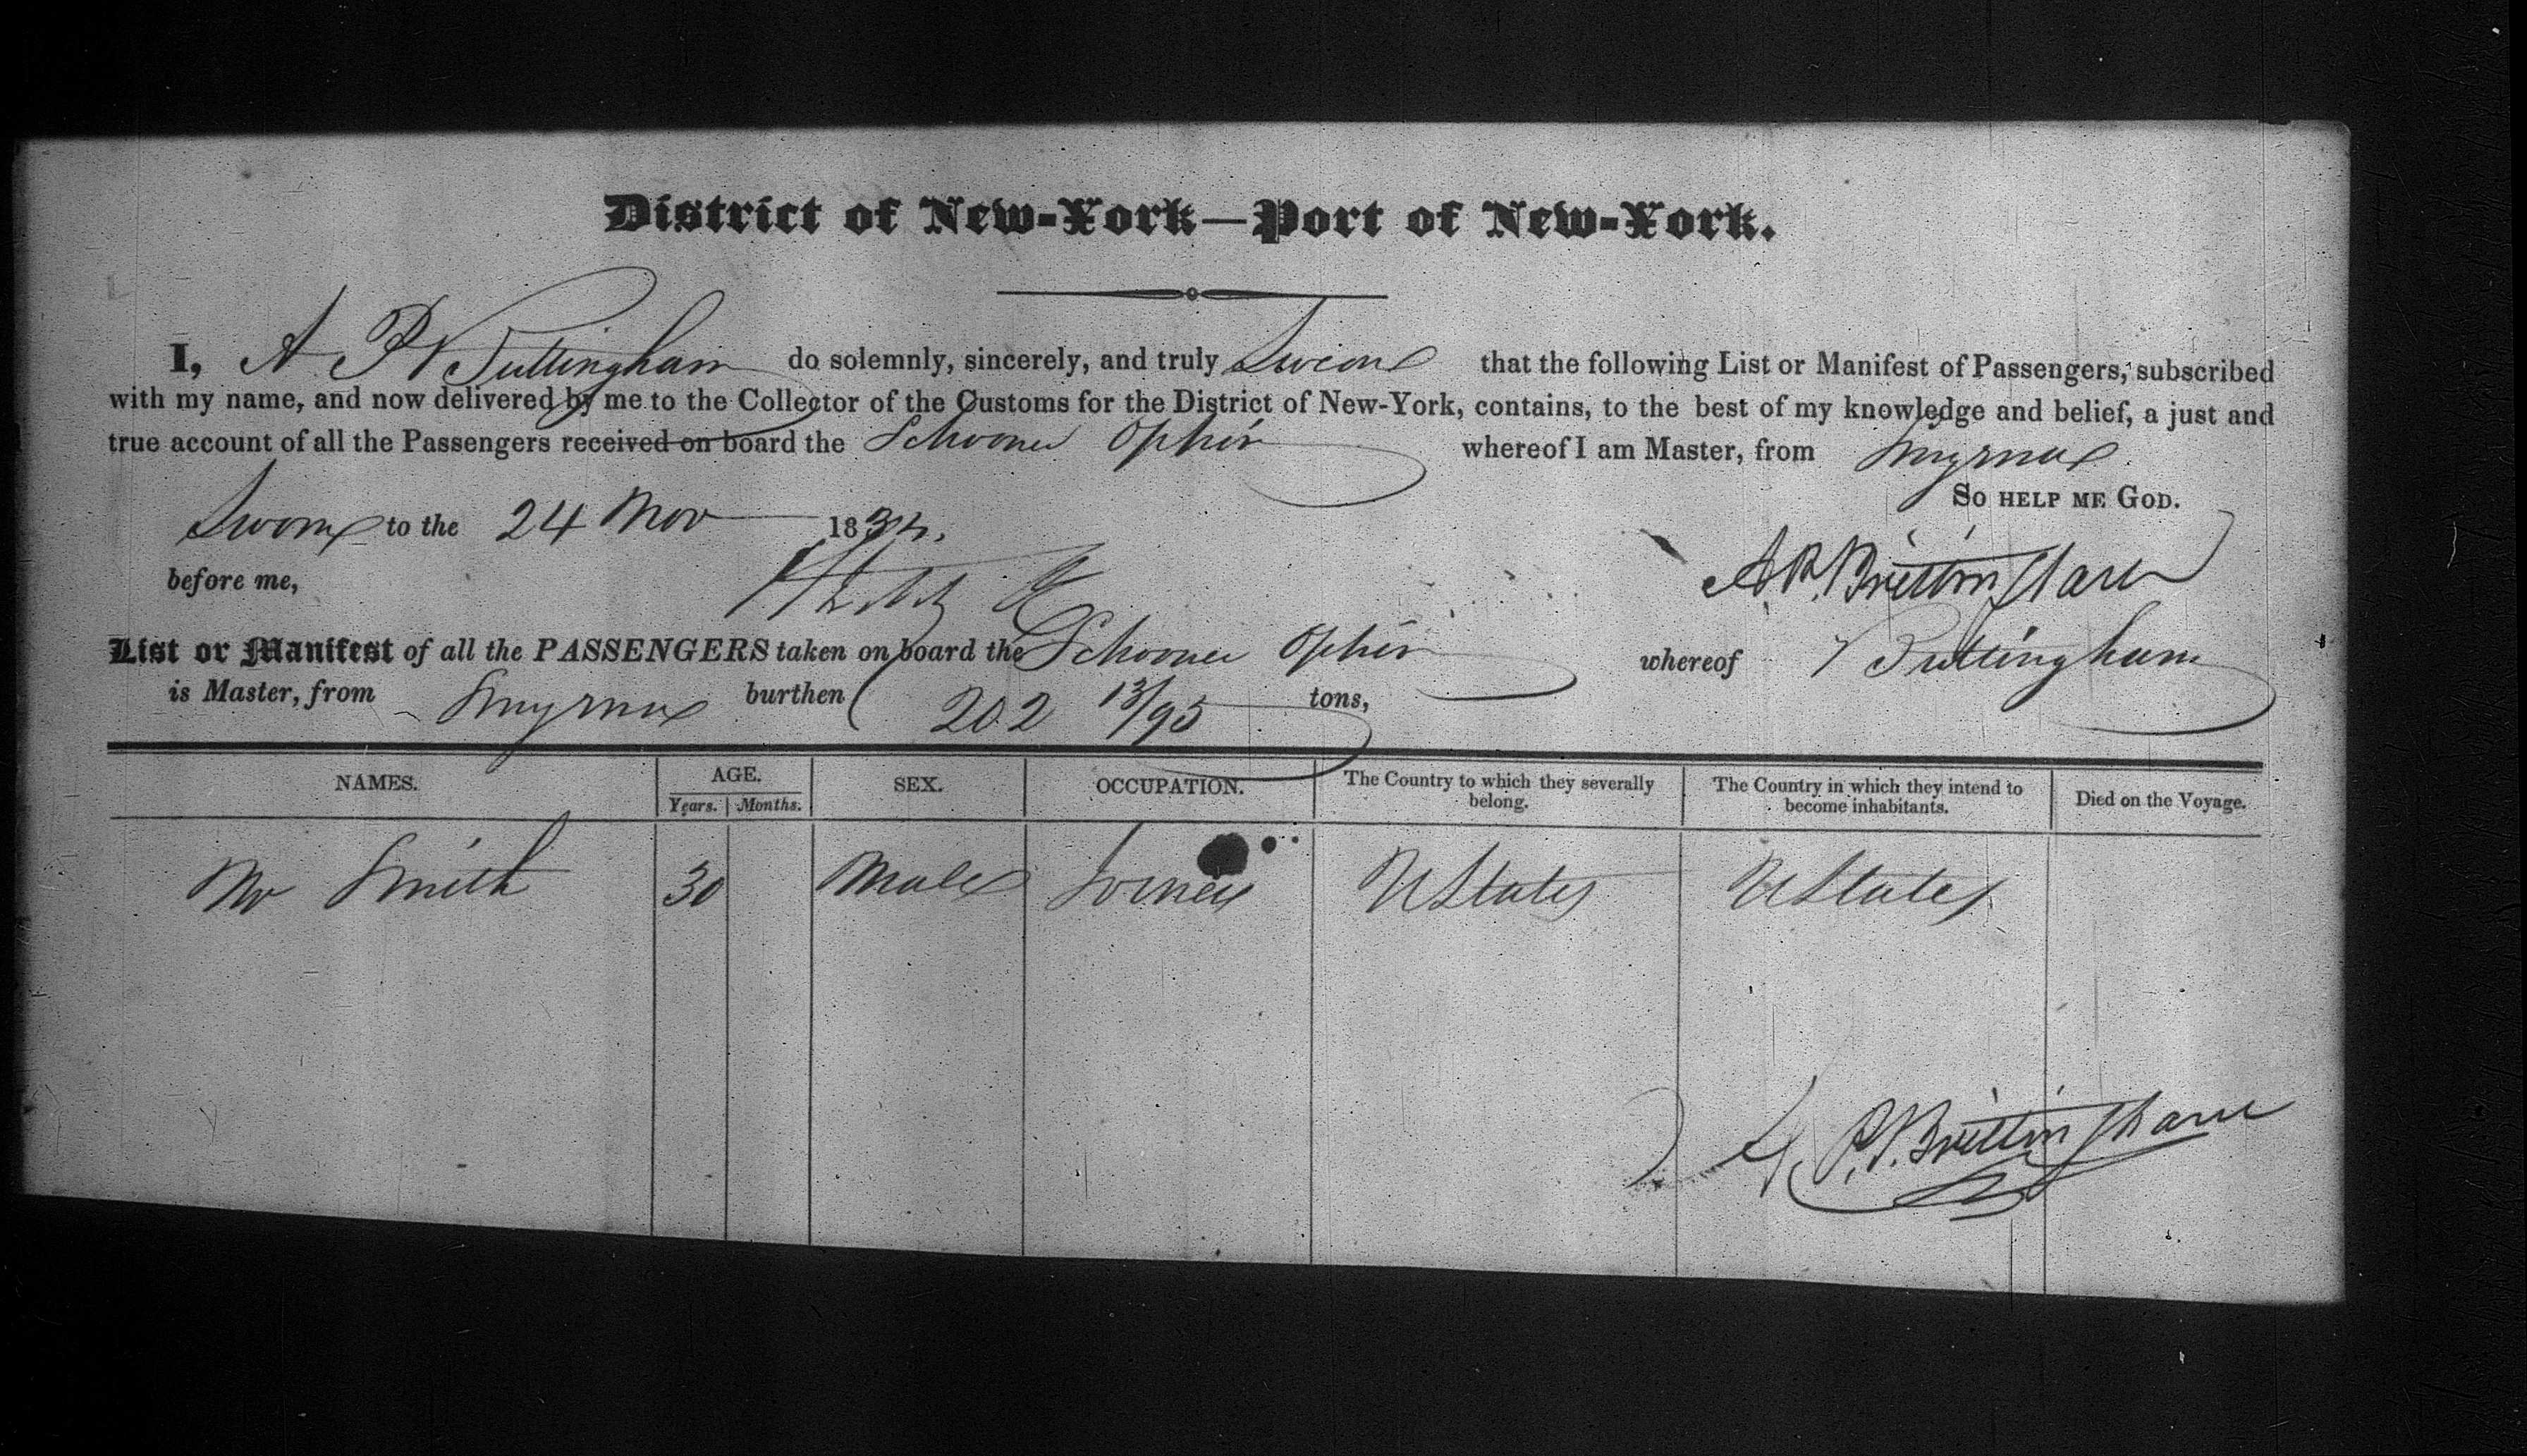 District of New-York—Port of New-York.
I, A P Brittingham do solemnly, sincerely, and truly Swear that the following List or Manifest of Passengers, subscribed
with my name, and now delivered by me to the Collector of the Customs for the District of New-York, contains, to the best of my knowledge and belief, a just and
true account of all the Passengers received on board the Schooner Ophir whereof I am Master, from Smyrna
So help me God.
Sworn to the 24 Nov 1834.
before me,
A. P. Brittingham
List or Manifest of all the PASSENGERS taken on board the Schooner Ophir whereof Brittingham
is Master, from Smyrna burthen 202 13/95 tons,
NAMES. AGE. SEX. OCCUPATION. The Country to which they severally belong. The Country in which they intend to become inhabitants. Died on the Voyage.
Years. Months.
Mr Smith 30 Male U States U States
A. P. Brittingham